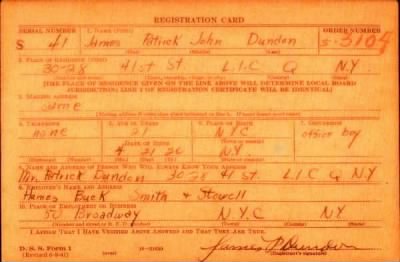 REGISTRATION CARD
SERIAL NUMBER 1. NAME (Print) ORDER NUMBER
S 41 James Patrick John Dundon S-3105
2. PLACE OF RESIDENCE (Print)
30-28 41st St. L.I.C Q N.Y.
[THE PLACE OF RESIDENCE GIVEN ON THE LINE ABOVE WILL DETERMINE LOCAL BOARD
JURISDICTION; LINE 2 OF REGISTRATION CERTIFICATE WILL BE IDENTICAL]
3. MAILING ADDRESS
same
4. TELEPHONE 5. AGE IN YEARS 6. PLACE OF BIRTH 7. OCCUPATION
none 21 N.Y.C office boy
DATE OF BIRTH
21 20 N.Y.
8. NAME AND ADDRESS OF PERSON WHO WILL ALWAYS KNOW YOUR ADDRESS
Mr. Patrick Dundon 30-28 41 St. L.I.C Q N.Y.
9. EMPLOYER'S NAME AND ADDRESS
Buck Smith & Stowell
10. PLACE OF EMPLOYMENT OR BUSINESS
50 Broadway N.Y.C. N.Y.
I AFFIRM THAT I HAVE VERIFIED ABOVE ANSWERS AND THAT THEY ARE TRUE.
D. S. S. Form 1 James P Dundon
(Revised 6-9-41) (Registrant's signature)